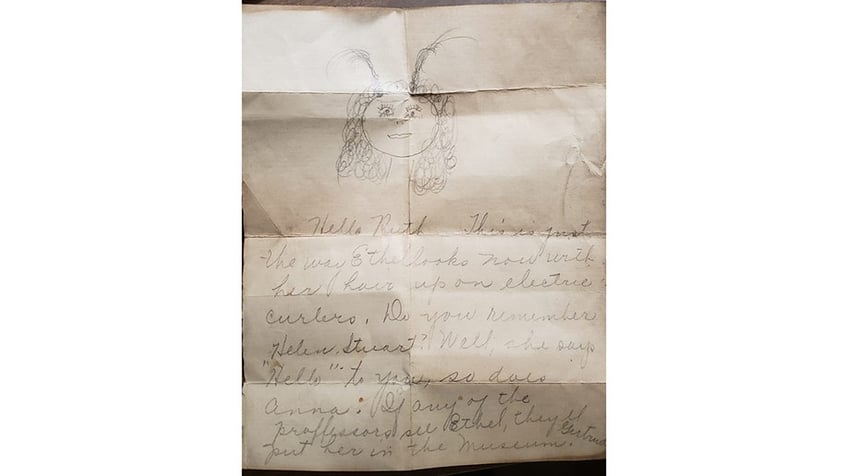 Hello Ruth This is just
the way Ethel looks now with
her hair up on electric
curlers. Do you remember
"Helen Stuart? Well, she says
"Hello" to you, so does
Anna. If any of the
proffessors see Ethel, they'll
put her in the Museum.
Gertrude